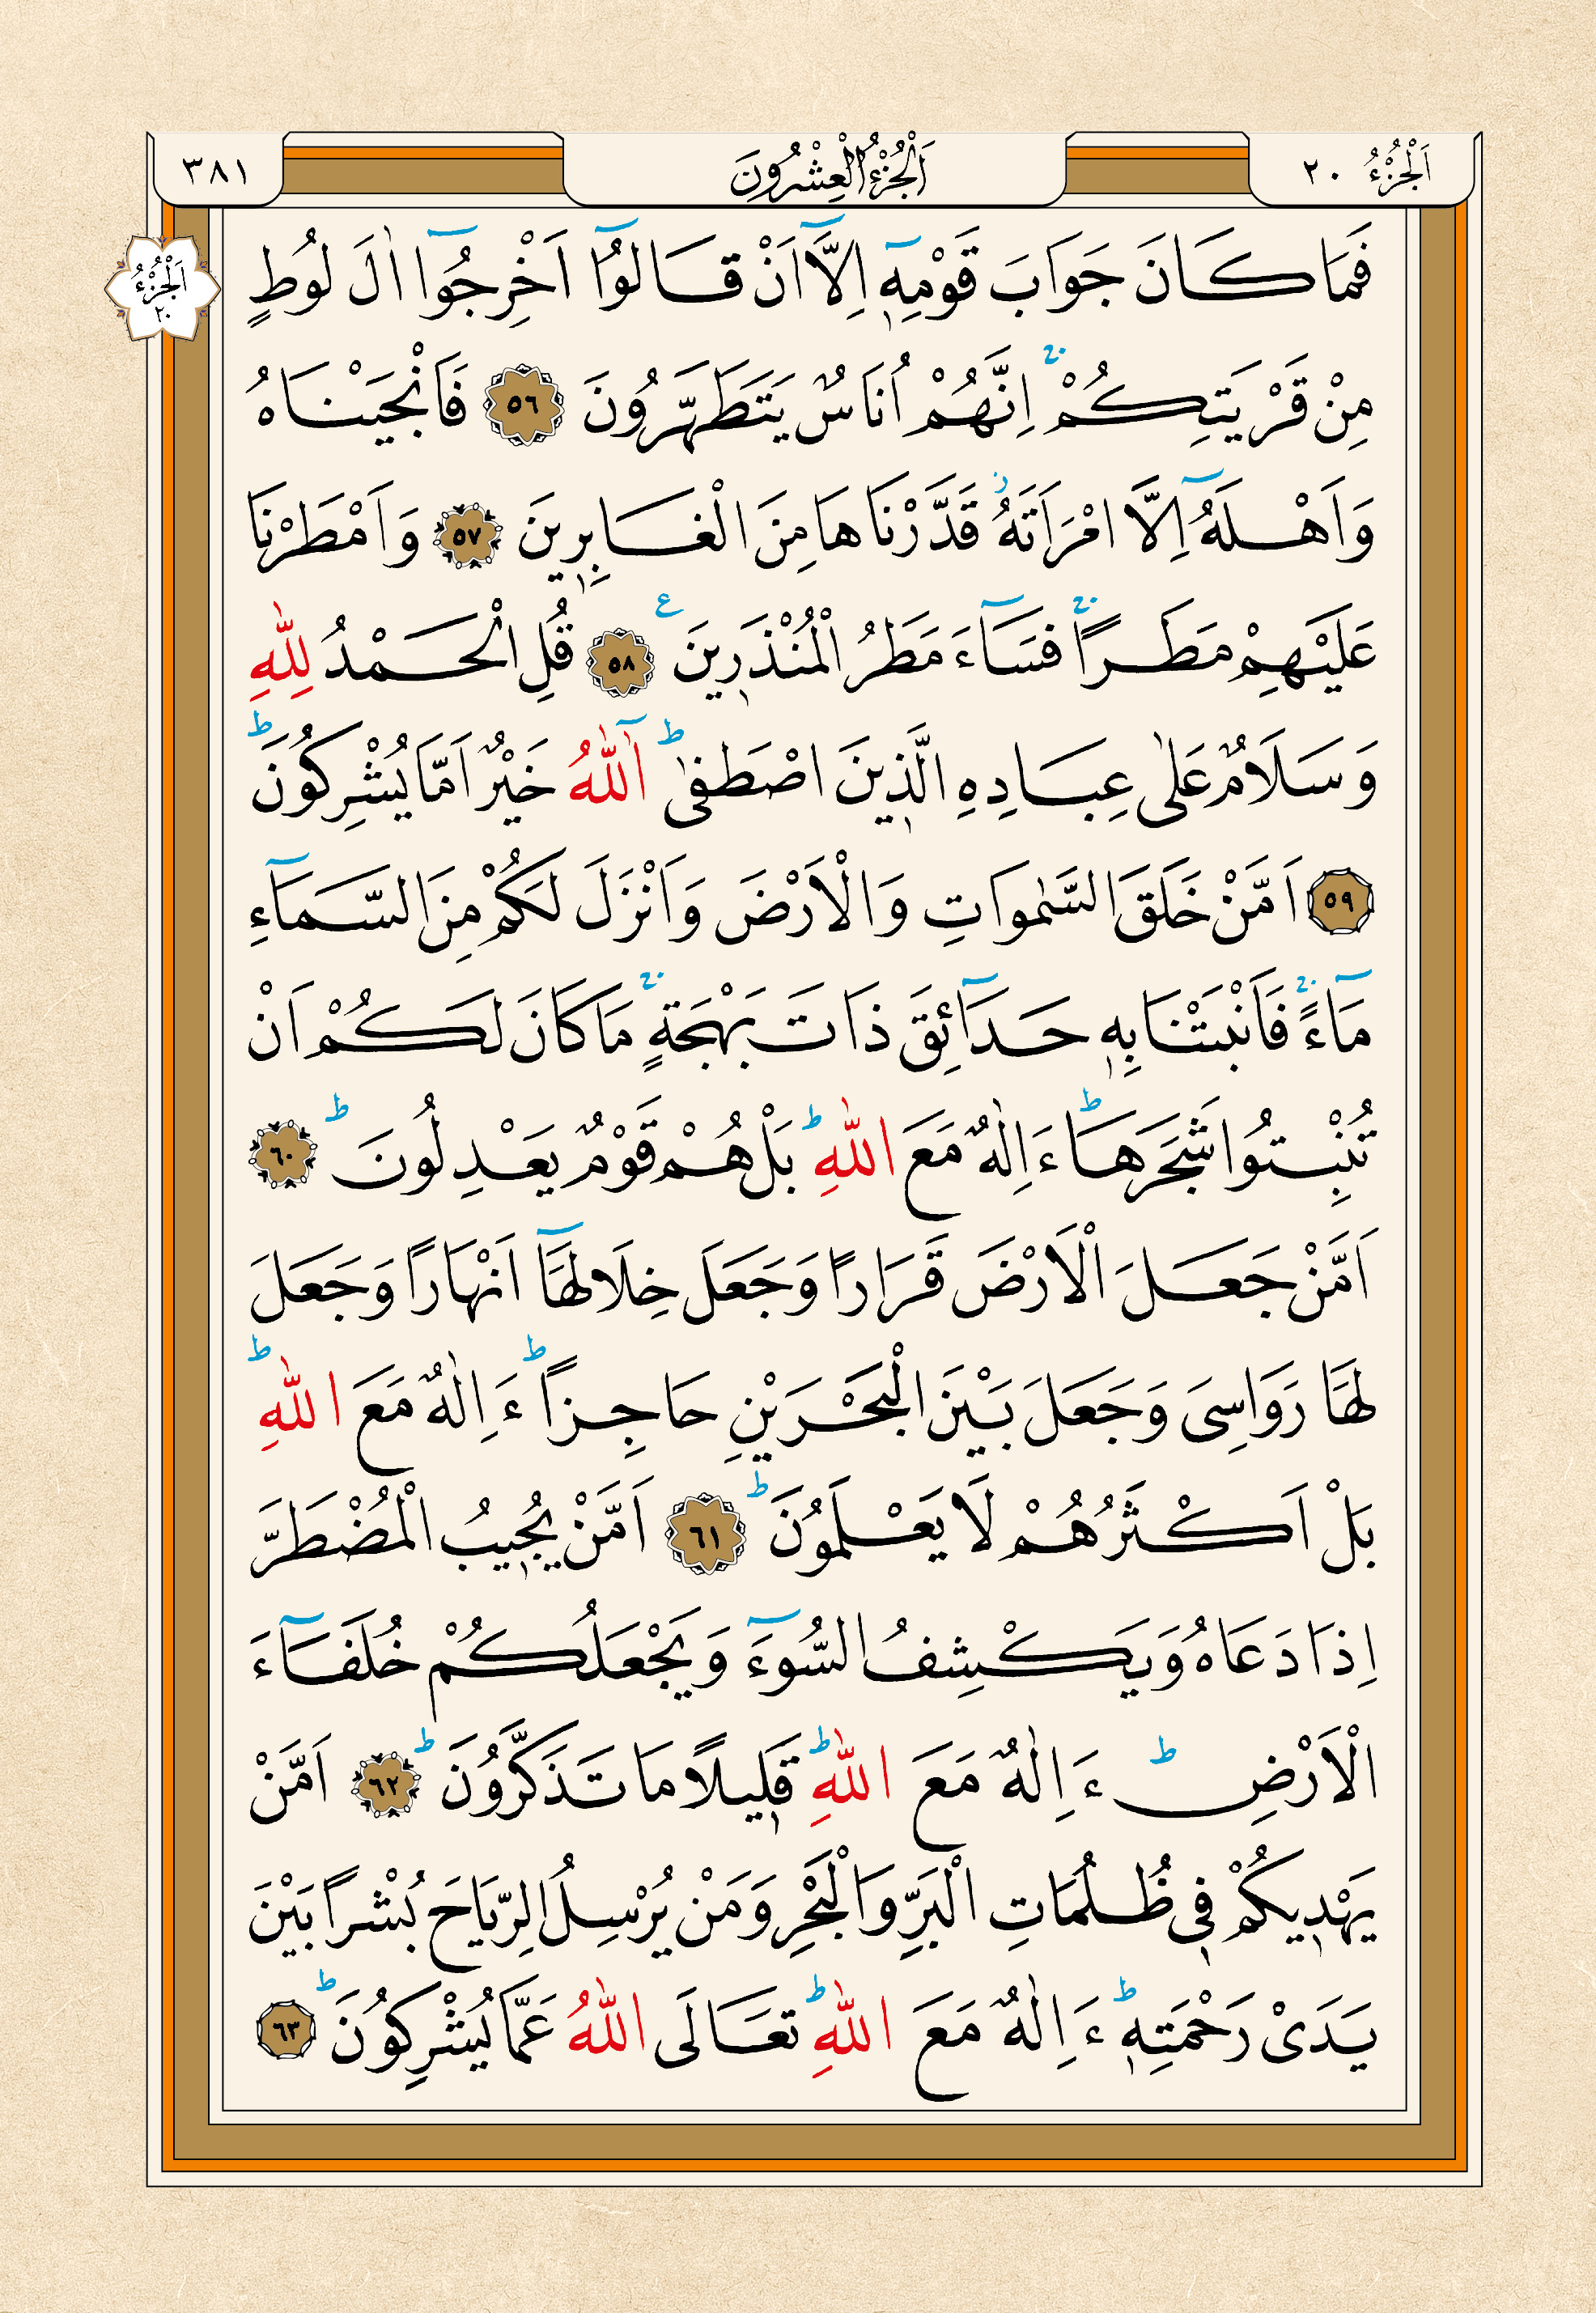 اَلْجُزْءُ ٢٠
اَلْجُزْءُ الْعِشْرُونَ
٣٨١
اَلْجُزْءُ
٢٠
فَمَا كَانَ جَوَابَ قَوْمِه۪ٓ اِلَّٓا اَنْ قَالُٓوا اَخْرِجُٓوا اٰلَ لُوطٍ
مِنْ قَرْيَتِكُمْۚ اِنَّهُمْ اُنَاسٌ يَتَطَهَّرُونَ ٥٦ فَاَنْجَيْنَاهُ
وَاَهْلَهُٓ اِلَّا امْرَاَتَهُۘ قَدَّرْنَاهَا مِنَ الْغَابِر۪ينَ ٥٧ وَاَمْطَرْنَا
عَلَيْهِمْ مَطَرًاۚ فَسَٓاءَ مَطَرُ الْمُنْذَر۪ينَ ع ٥٨ قُلِ الْحَمْدُ لِلّٰهِ
وَسَلَامٌ عَلٰى عِبَادِهِ الَّذ۪ينَ اصْطَفٰىۜ آٰللّٰهُ خَيْرٌ اَمَّا يُشْرِكُونَۜ
٥٩ اَمَّنْ خَلَقَ السَّمٰوَاتِ وَالْاَرْضَ وَاَنْزَلَ لَكُمْ مِنَ السَّمَٓاءِ
مَٓاءًۚ فَاَنْبَتْنَا بِه۪ حَدَٓائِقَ ذَاتَ بَهْجَةٍۚ مَا كَانَ لَكُمْ اَنْ
تُنْبِتُوا شَجَرَهَاۜ ءَاِلٰهٌ مَعَ اللّٰهِۜ بَلْ هُمْ قَوْمٌ يَعْدِلُونَۜ ٦٠
اَمَّنْ جَعَلَ الْاَرْضَ قَرَارًا وَجَعَلَ خِلَالَهَٓا اَنْهَارًا وَجَعَلَ
لَهَا رَوَاسِيَ وَجَعَلَ بَيْنَ الْبَحْرَيْنِ حَاجِزًاۜ ءَاِلٰهٌ مَعَ اللّٰهِۜ
بَلْ اَكْثَرُهُمْ لَا يَعْلَمُونَۜ ٦١ اَمَّنْ يُج۪يبُ الْمُضْطَرَّ
اِذَا دَعَاهُ وَيَكْشِفُ السُّٓوءَ وَيَجْعَلُكُمْ خُلَفَٓاءَ
الْاَرْضِۜ ءَاِلٰهٌ مَعَ اللّٰهِۜ قَل۪يلًا مَا تَذَكَّرُونَۜ ٦٢ اَمَّنْ
يَهْد۪يكُمْ ف۪ي ظُلُمَاتِ الْبَرِّ وَالْبَحْرِ وَمَنْ يُرْسِلُ الرِّيَاحَ بُشْرًا بَيْنَ
يَدَيْ رَحْمَتِه۪ۜ ءَاِلٰهٌ مَعَ اللّٰهِۜ تَعَالَى اللّٰهُ عَمَّا يُشْرِكُونَۜ ٦٣